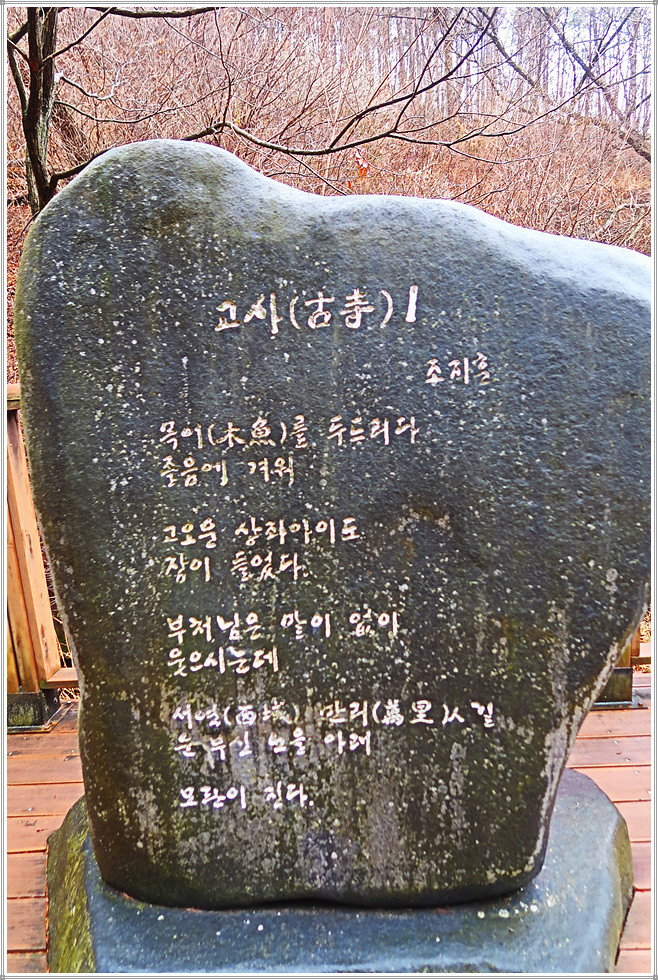 고사(古寺)1
조지훈
목어(木魚)를 두드리다
졸음에 겨워
고오운 상좌아이도
잠이 들었다.
부처님은 말이 없이
웃으시는데
서역(西域) 만리(萬里)ㅅ길
눈부신 노을 아래
모란이 진다.